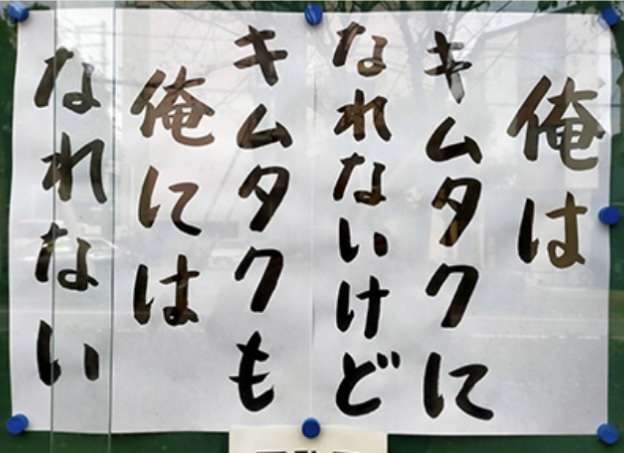 俺は
キムタクに
なれないけど
キムタクも
俺には
なれない